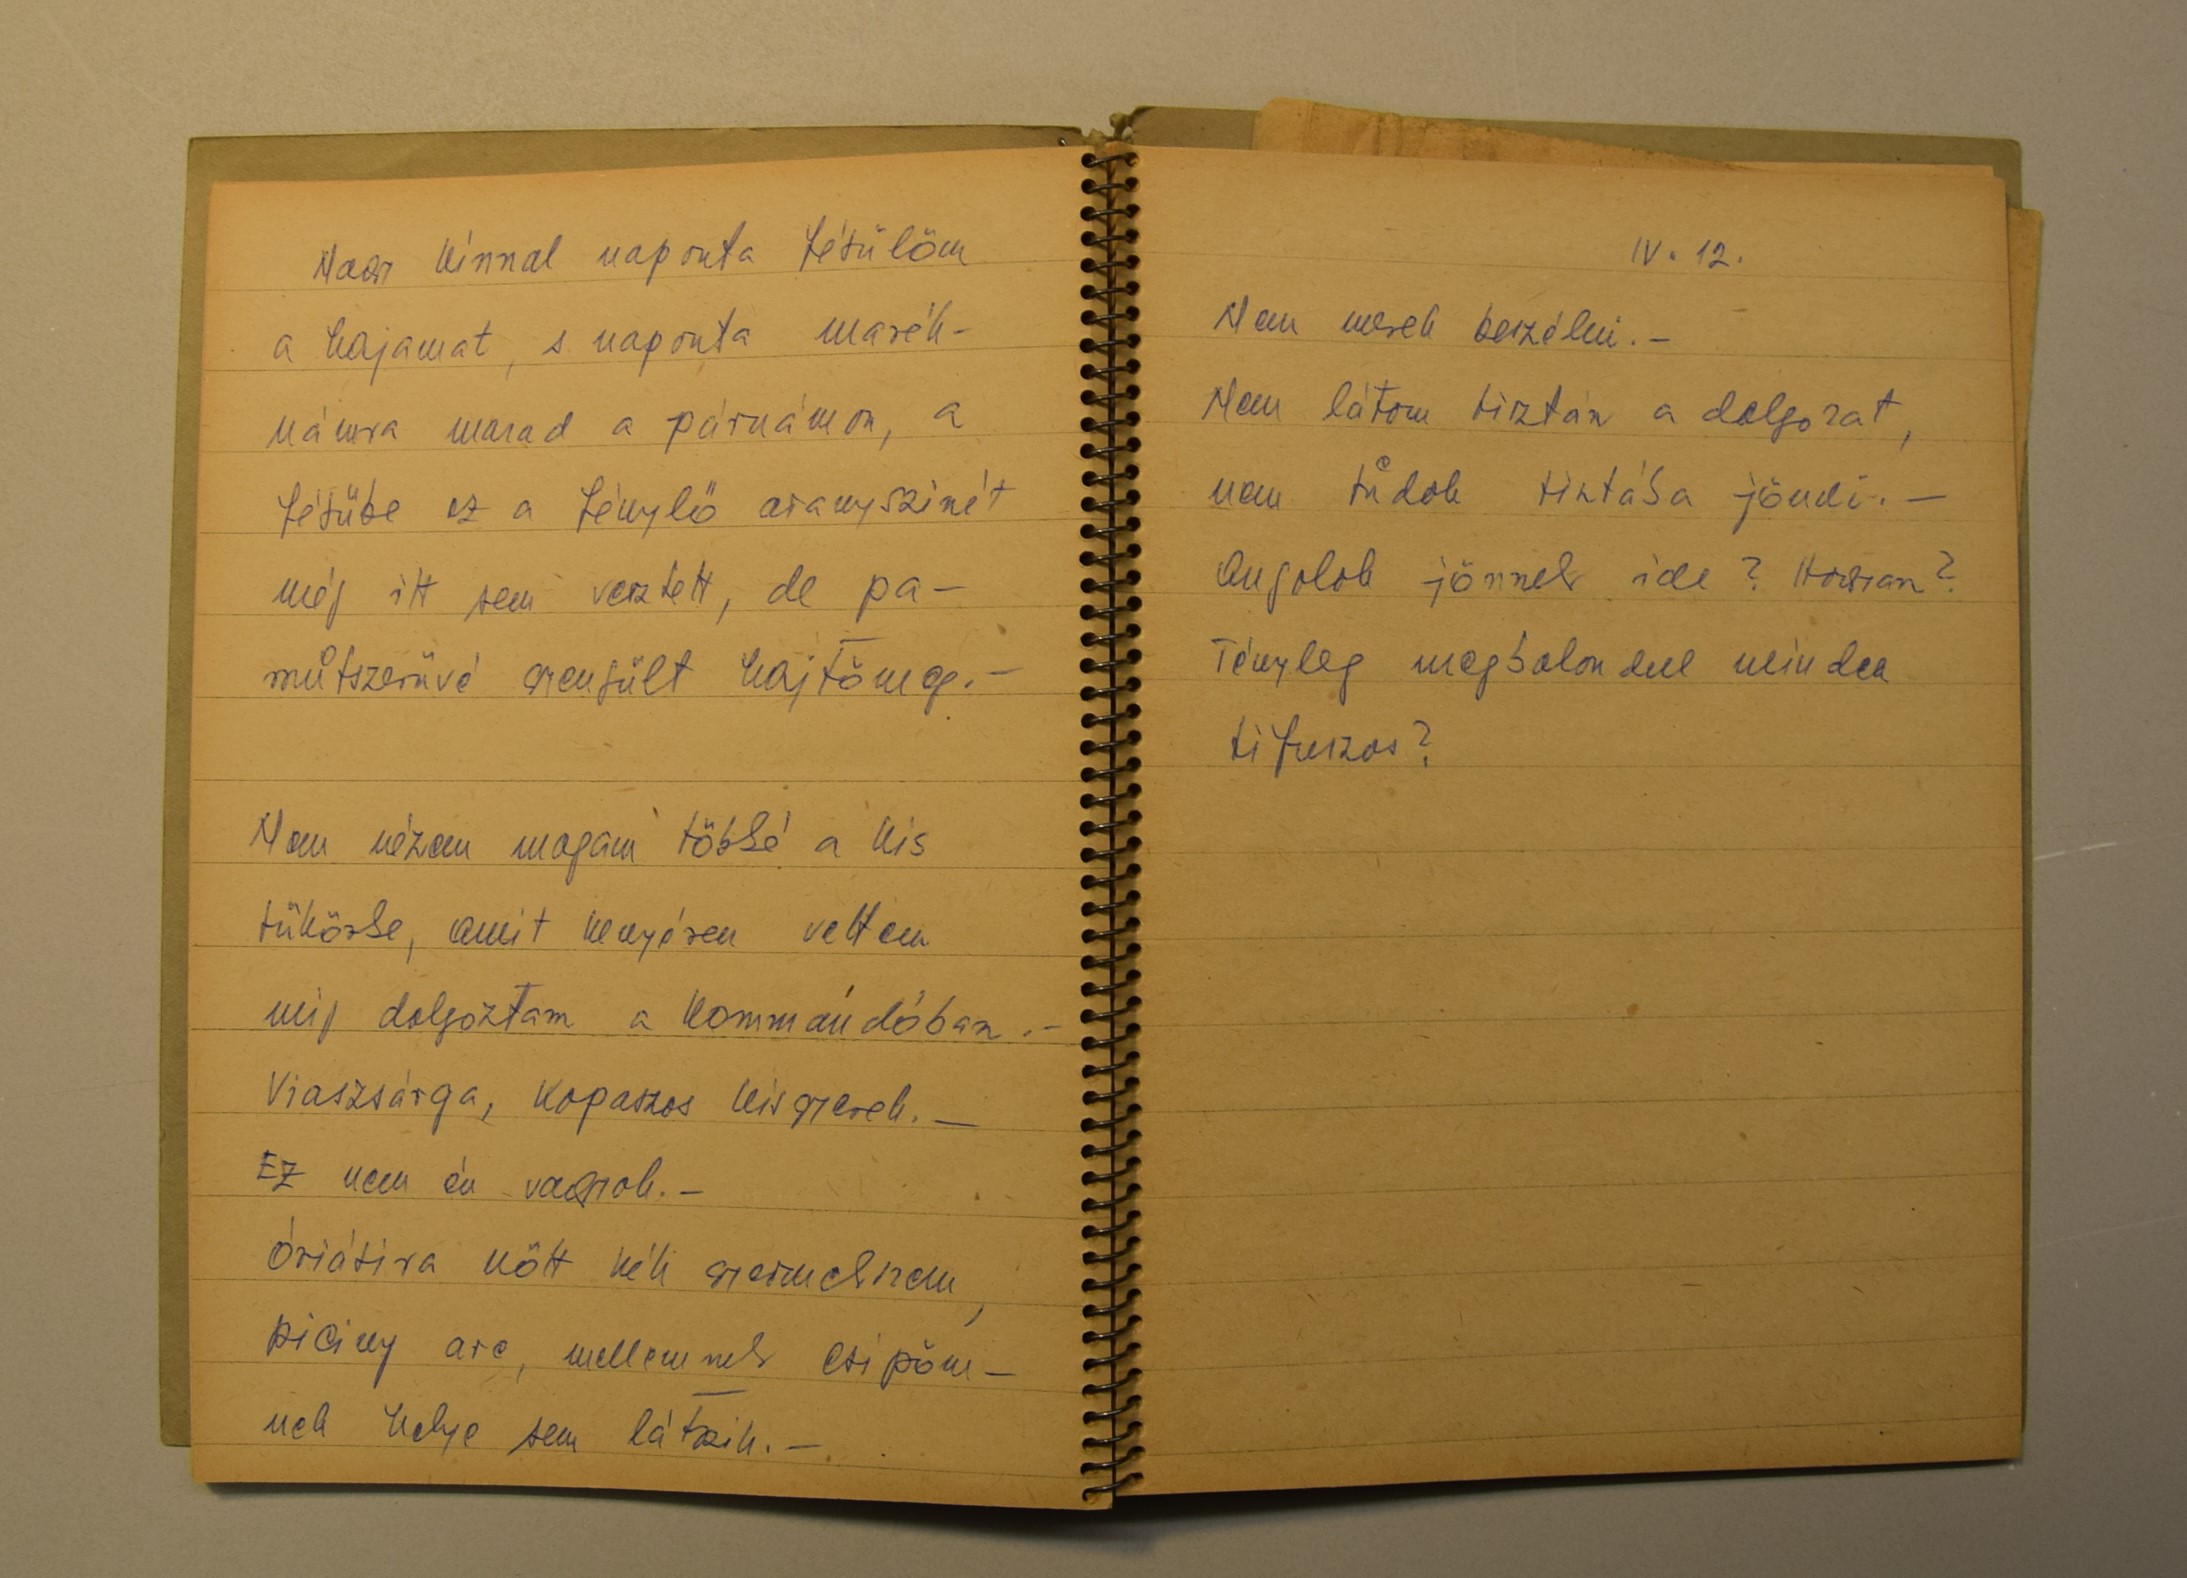 Nagy kínnal naponta fésülöm
a hajamat, s naponta marék-
námra marad a párnámon, a
fésübe ez a fénylő aranyszinét
még itt sem vesztett, de pa-
mutszerüvé gyengült hajtömeg.-
Nem nézem magam többé a kis
tükörbe, amit kenyéren vettem
mig dolgoztam a kommandóban.-
Viaszsárga, kopaszos kisgyerek.-
Ez nem én vagyok.-
Óriásira nőtt kék gyermekszem,
piciny arc, mellemnek csipőm-
nek helye sem látszik.-
IV. 12.
Nem merek beszélni.-
Nem látom tisztán a dolgokat,
nem tudok tisztába jönni.-
Angolok jönnek ide? Honnan?
Tényleg megbolondul minden
tifuszos?